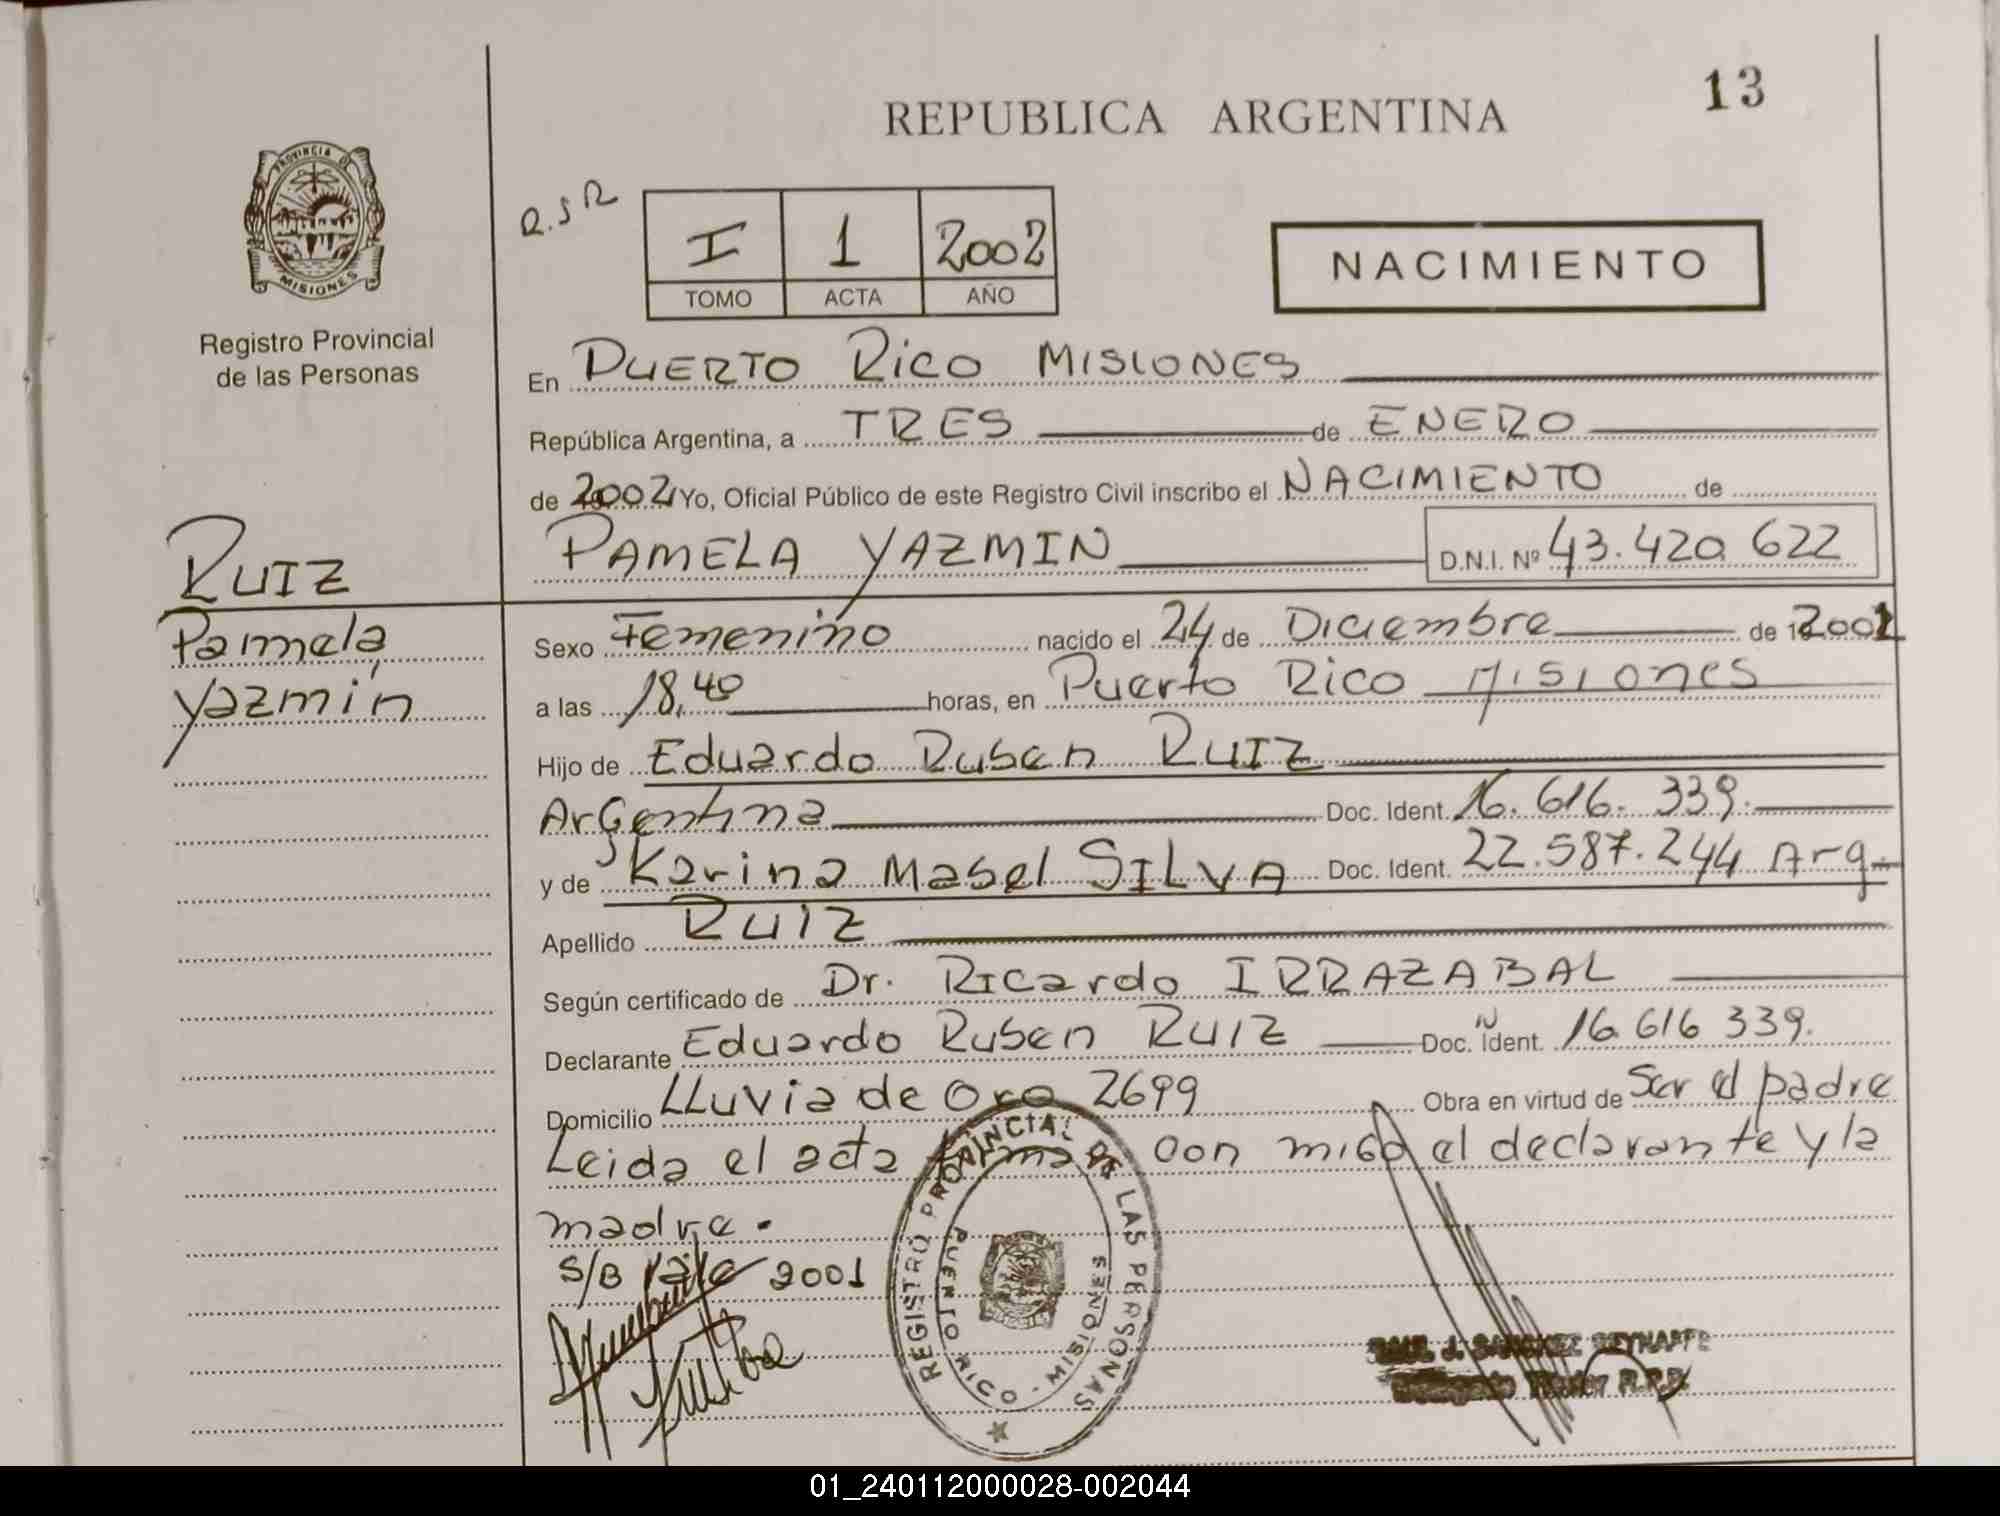 13
REPUBLICA ARGENTINA
PROVINCIA DE
MISIONES
Registro Provincial
de las Personas
R.S R
I 1 2002
TOMO ACTA AÑO
NACIMIENTO
En PUERTO RICO MISIONES
República Argentina, a TRES de ENERO
de 2002 Yo, Oficial Público de este Registro Civil inscribo el NACIMIENTO de
PAMELA YAZMIN D.N.I. Nº 43.420.622
RUIZ
Pamela
Yazmín
Sexo Femenino nacido el 24 de Diciembre de 2001
a las 18,40 horas, en Puerto Rico Misiones
Hijo de Eduardo Ruben RUIZ
Argentina Doc. Ident. 16.616.339.
y de Karina Mabel SILVA Doc. Ident. 22.587.244 Arg.
Apellido RUIZ
Según certificado de Dr. Ricardo IRRAZABAL
Declarante Eduardo Ruben RUIZ Doc. N Ident. 16 616 339.
Domicilio LLuvia de Oro 2699 Obra en virtud de Ser el padre
Leida el acta firma con migo el declarante y la
madre.
S/B vale 2001
REGISTRO PROVINCIAL DE LAS PERSONAS
PUERTO RICO - MISIONES
J. SANCHEZ
R.P.P.
01_240112000028-002044